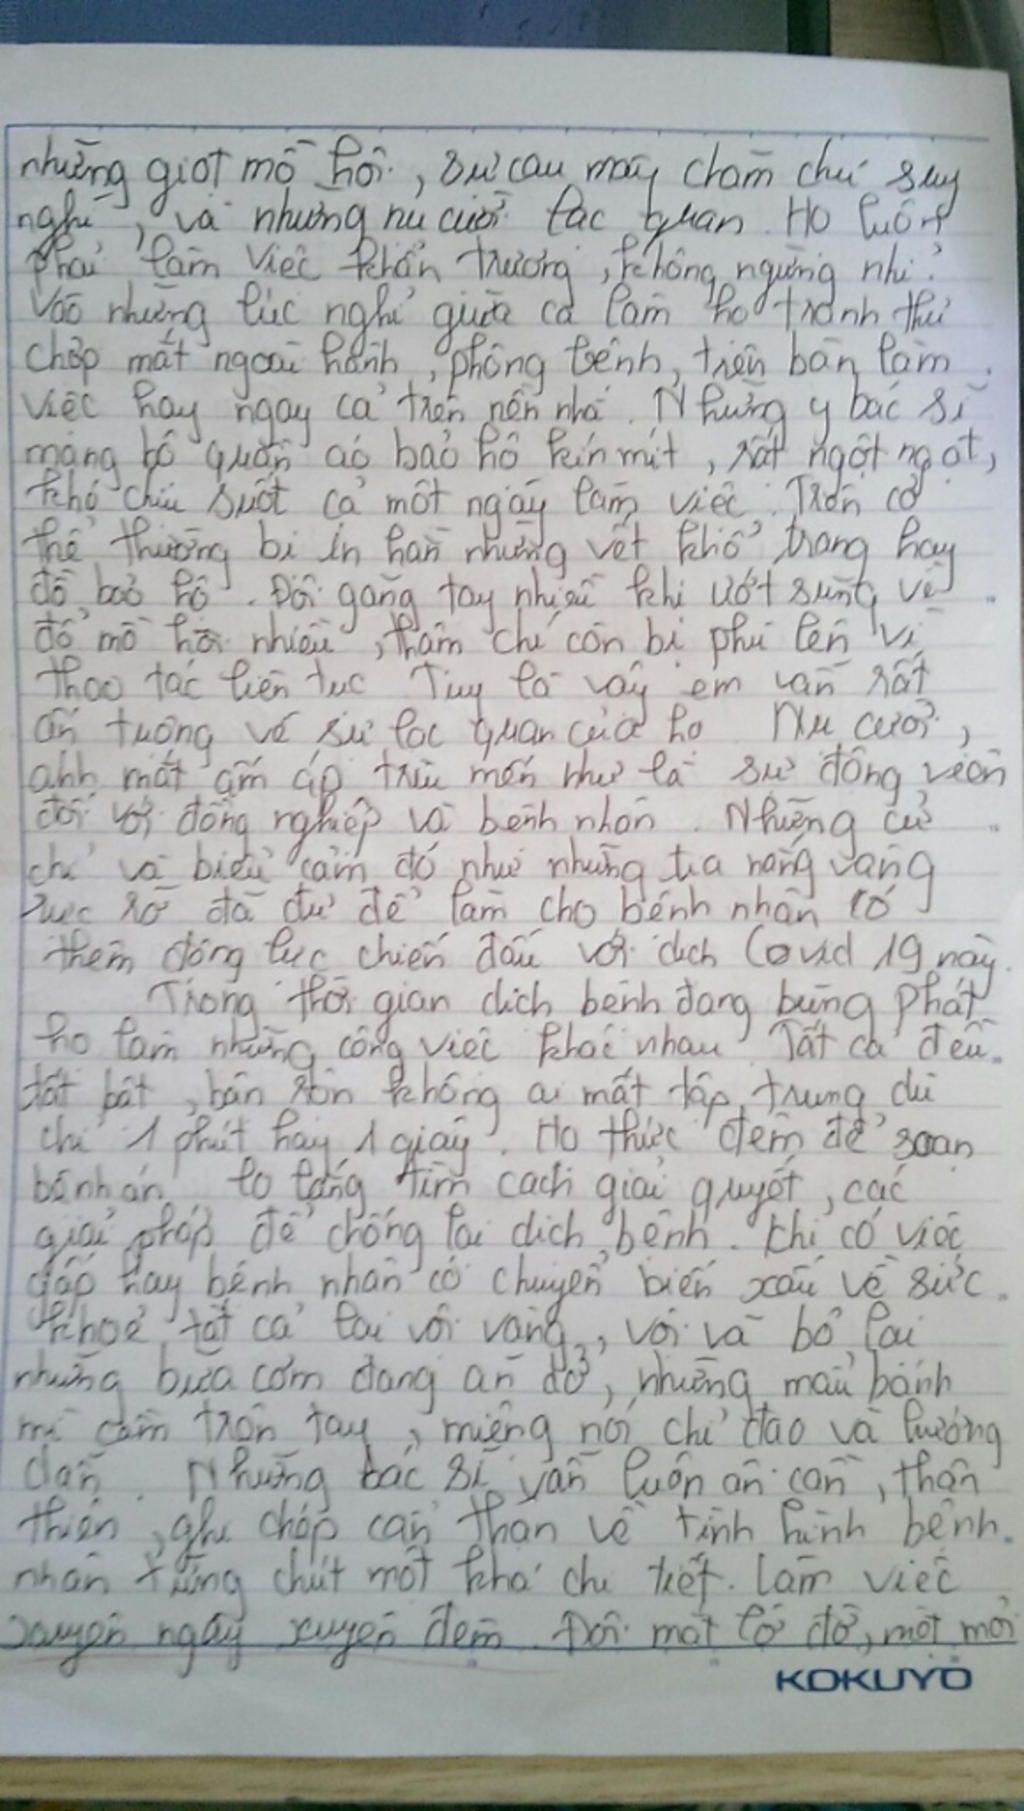 những giọt mồ hôi, sự cau mày chăm chú suy
nghĩ, và những nụ cười lạc quan. Họ luôn
phải làm việc khẩn trương, không ngừng nhỉ.
Vào những lúc nghỉ giữa ca làm họ tranh thủ
chợp mắt ngoài hành, phòng bệnh, trên bàn làm
việc hay ngay cả trên nền nhà. Những y bác sĩ
mang bộ quần áo bảo hộ kín mít, rất ngột ngạt,
khó chịu suốt cả một ngày làm việc. Trên cơ
thể thường bị in hằn những vết khổ trang hay
đồ bảo hộ. Đôi găng tay nhiều khi ướt sũng vì
đổ mồ hôi nhiều, thậm chí còn bị phù lên vì
thao tác liên tục. Tuy là vậy em vẫn rất
ấn tượng về sự lạc quan của họ. Nụ cười,
ánh mắt ấm áp trìu mến như là sự động viên
đối với đồng nghiệp và bệnh nhân. Những cử
chỉ và biểu cảm đó như những tia nắng vàng
rực rỡ đã đủ để làm cho bệnh nhân có
thêm động lực chiến đấu với dịch Covid 19 này.
Trong thời gian dịch bệnh đang bùng phát
họ làm những công việc khác nhau. Tất cả đều
tất bật, bận rộn không ai mất tập trung dù
chỉ 1 phút hay 1 giây. Họ thức đêm để soạn
bệnh án, lo lắng tìm cách giải quyết, các
giải pháp để chống lại dịch bệnh. Khi có việc
gấp hay bệnh nhân có chuyển biến xấu về sức
khoẻ, tất cả lại vội vàng, vội vã bỏ lại
những bữa cơm đang ăn dở, những mẩu bánh
mì cầm trên tay, miệng nói chỉ đạo và hướng
dẫn. Những bác sĩ vẫn luôn ân cần, thân
thiện, ghi chép cẩn thận về tình hình bệnh
nhân từng chút một khá chi tiết. Làm việc
xuyên ngày xuyên đêm. Đôi mắt lờ đờ, mệt mỏi
KOKUYO